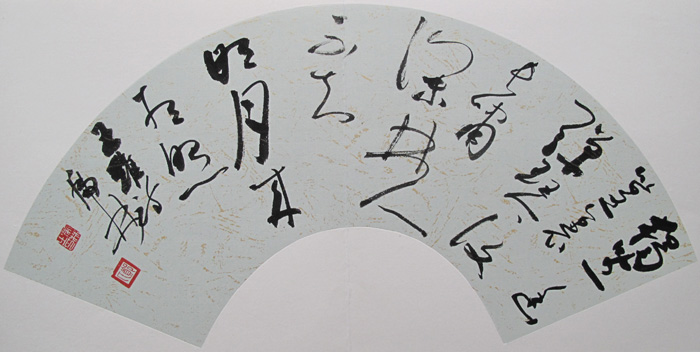 獨坐幽
篁里
彈琴復
長嘯
深林人
不知
明月来
相照
王維詩